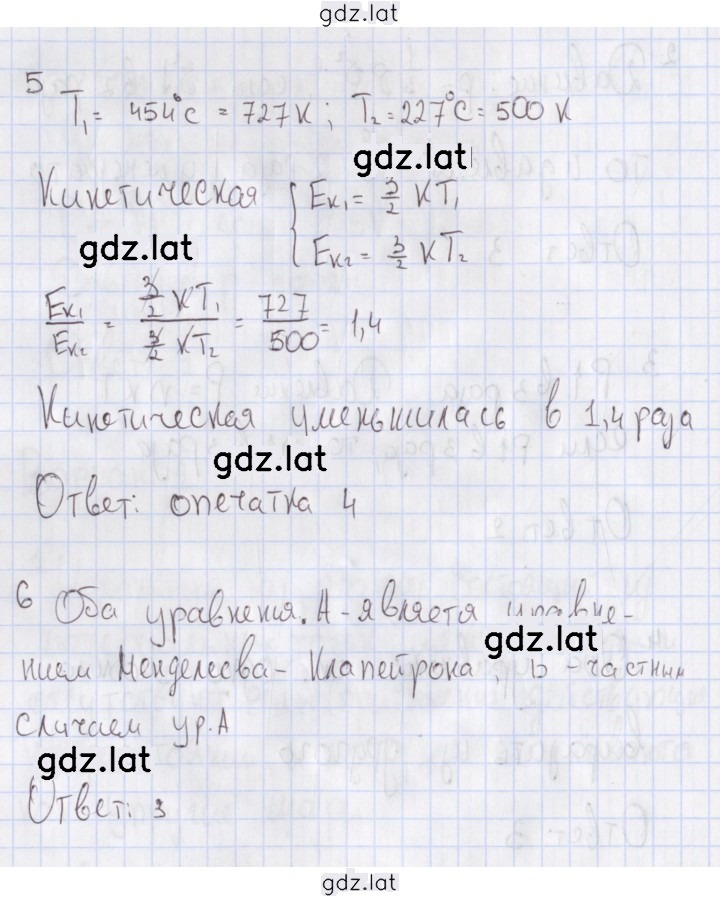 gdz.lat
5
T₁ = 454°C = 727 K ; T₂ = 227°C = 500 K
gdz.lat
Кинетическая { Eк₁ = 3/2 KT₁
gdz.lat
Eк₂ = 3/2 KT₂
Eк₁/Eк₂ = (3/2 KT₁)/(3/2 KT₂) = 727/500 = 1,4
Кинетическая уменьшилась в 1,4 раза
gdz.lat
Ответ: опечатка 4
6 Оба уравнения. А - является
gdz.lat
нием Менделеева - Клапейрона, - частным
случаем ур. А
gdz.lat
Ответ: 3
gdz.lat